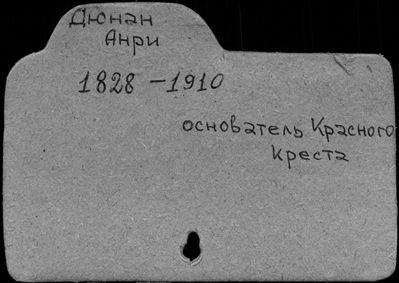 Дюнан
Анри
1828 – 1910
основатель Красного
Креста